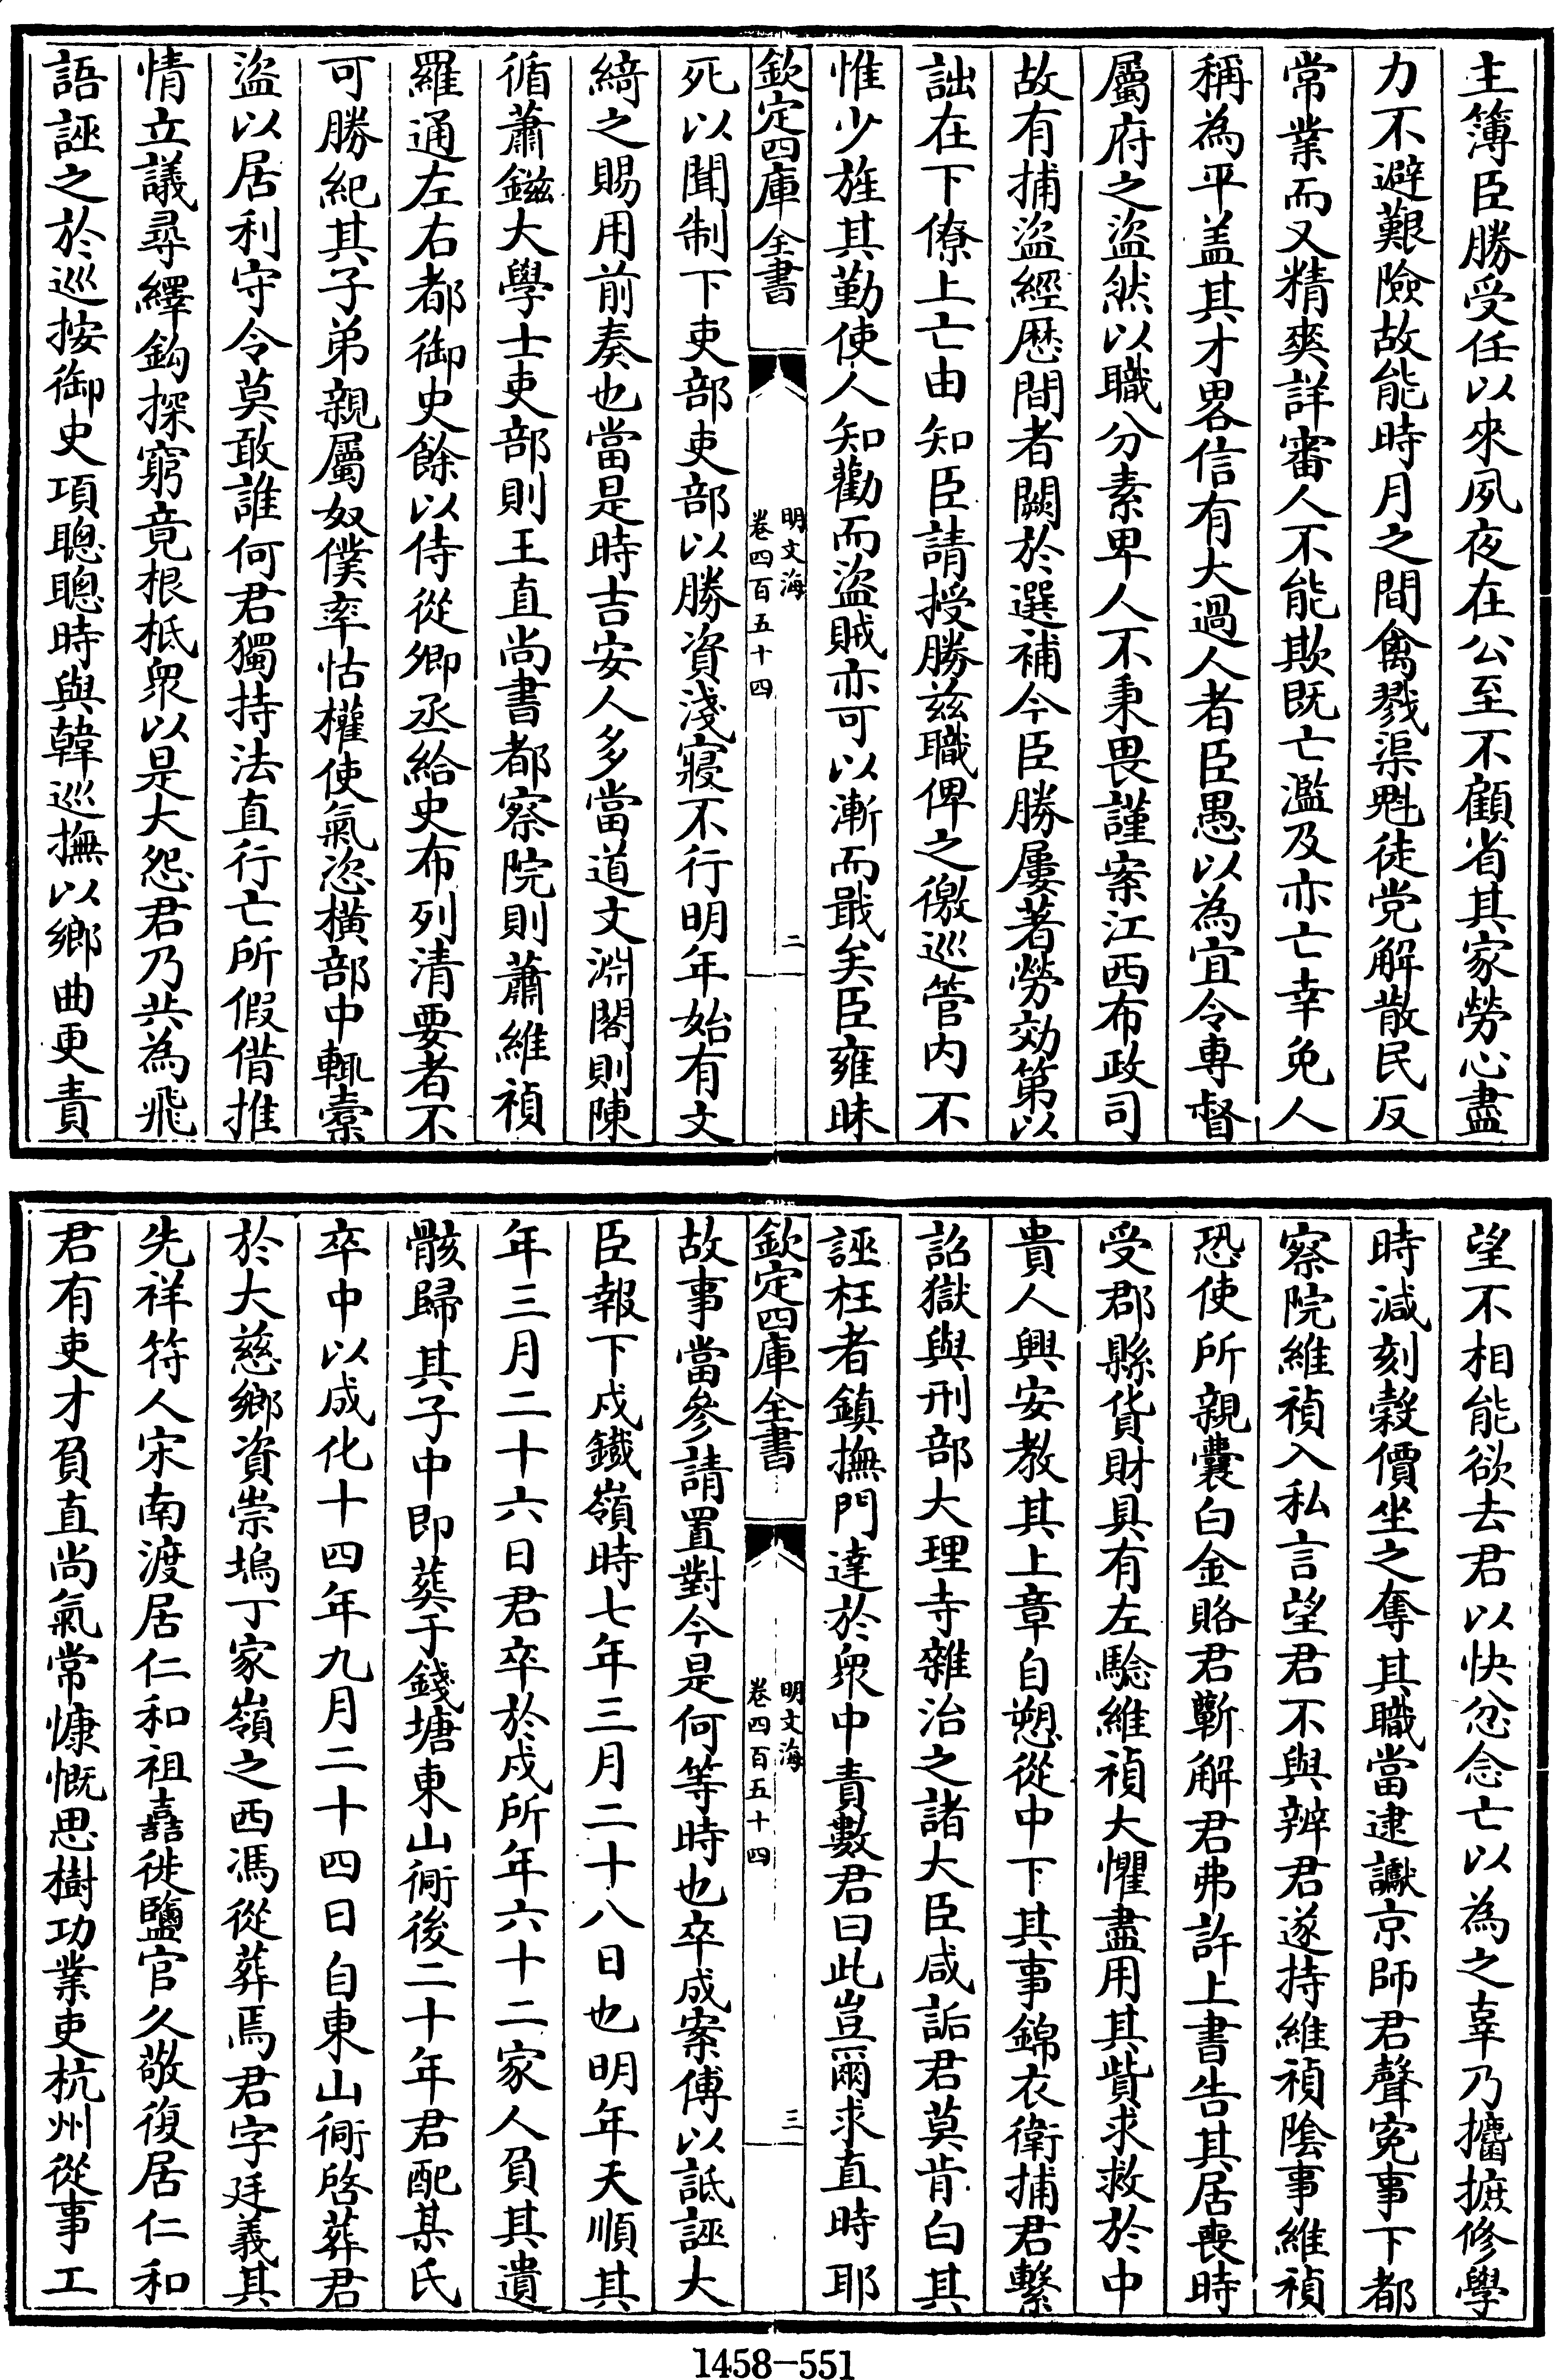 主簿臣勝受任以來夙夜在公至不顧省其家勞心盡
力不避艱險故能時月之間禽戮渠魁徒党解散民反
常業而又精爽詳審人不能欺既亡濫及亦亡幸免人
稱為平盖其才畧信有大過人者臣愚以為宜令專督
屬府之盜然以職分素卑人不秉畏謹案江西布政司
故有捕盜經歴間者闕於選補今臣勝屢著勞効第以
詘在下僚上亡由知臣請授勝兹職俾之徼巡管内不
惟少旌其勤使人知勸而盜賊亦可以漸而戢矣臣雍昧
欽定四庫全書
明文海
卷四百五十四
二
死以聞制下吏部吏部以勝資淺寢不行明年始有文
綺之賜用前奏也當是時吉安人多當道文淵閣則陳
循蕭鎡大學士吏部則王直尚書都察院則蕭維禎
羅通左右都御史餘以侍從卿丞給史布列清要者不
可勝紀其子弟親屬奴僕率怙權使氣恣橫部中輒橐
盜以居利守令莫敢誰何君獨持法直行亡所假借推
情立議尋繹鈎探窮竟根柢衆以是大怨君乃共為飛
語誣之於巡按御史項聰聰時與韓巡撫以鄉曲更責
望不相能欲去君以快忿念亡以為之辜乃攟摭修學
時減刻穀價坐之奪其職當逮讞京師君聲寃事下都
察院維禎入私言望君不與辨君遂持維禎陰事維禎
恐使所親囊白金賂君蘄解君弗許上書告其居喪時
受郡縣貨財具有左驗維禎大懼盡用其貲求救於中
貴人興安教其上章自愬從中下其事錦衣衛捕君繫
詔獄與刑部大理寺雜治之諸大臣咸詬君莫肯白其
誣枉者鎮撫門達於衆中責數君曰此豈爾求直時耶
欽定四庫全書
明文海
卷四百五十四
三
故事當參請置對今是何等時也卒成案傅以詆誣大
臣報下戍鐵嶺時七年三月二十八日也明年天順其
年三月二十六日君卒於戍所年六十二家人負其遺
骸歸其子中即葬于錢塘東山衕後二十年君配某氏
卒中以成化十四年九月二十四日自東山衕啓葬君
於大慈鄉資崇塢丁家嶺之西馮從葬焉君字廷義其
先祥符人宋南渡居仁和祖嘉徙鹽官久敬復居仁和
君有吏才負直尚氣常慷慨思樹功業吏杭州從事工
1458-551